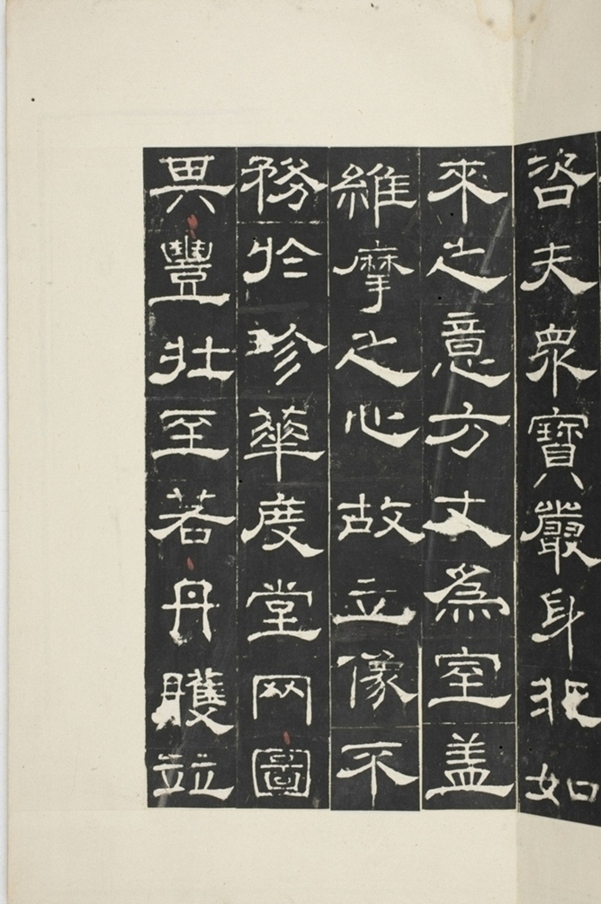 咨夫衆寶嚴身非如
來之意方丈為室盖
維摩之心故立像不
務於珍華度堂网圖
其豐壯至若丹雘並